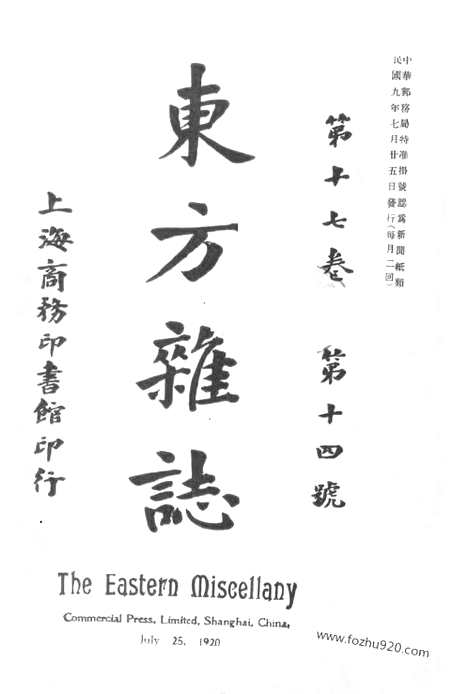 中華郵務局特准掛號認爲新聞紙類
民國九年七月廿五日發行(每月二回)
第十七卷 第十四號
東方雜誌
上海商務印書館印行
The Eastern Miscellany
Commercial Press, Limited, Shanghai, China,
July 25, 1920
www.fozhu920.com